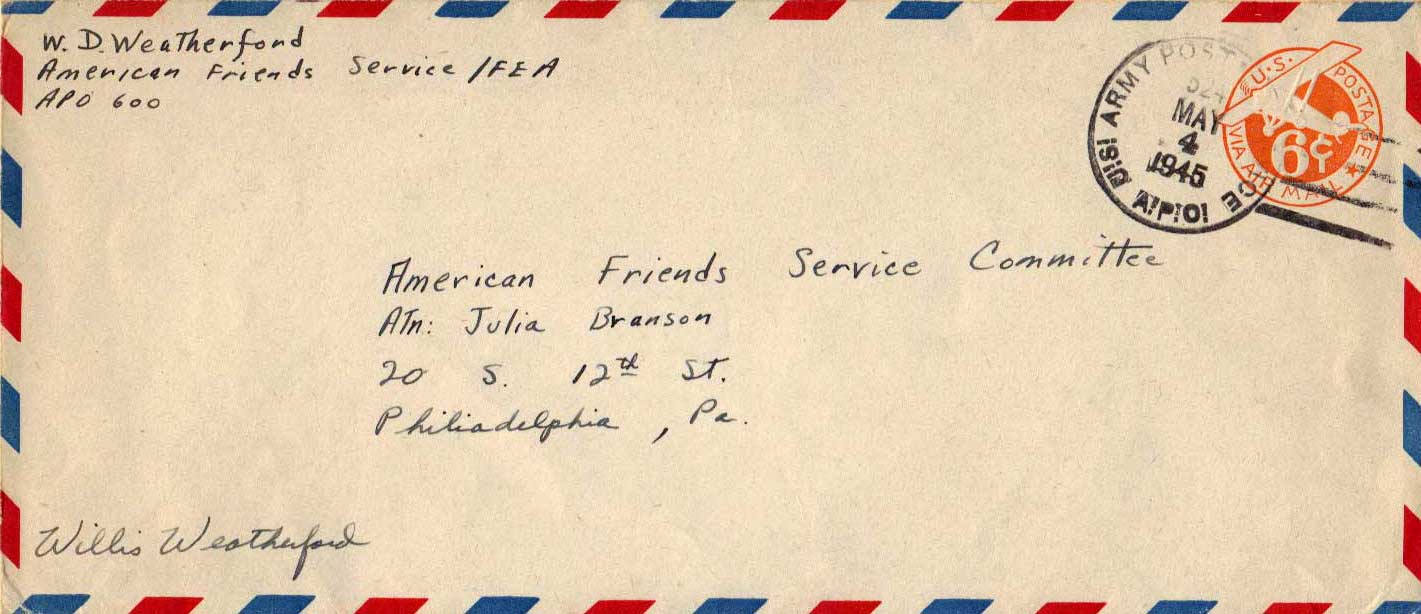 W. D. Weatherford
American Friends Service / FEA
APO 600
U.S. ARMY POST
MAY
4
1945
A.P.O.
U.S. POSTAGE
6¢
VIA AIR MAIL
American Friends Service Committee
Atn: Julia Branson
20 S. 12th St.
Philiadelphia, Pa.
Willis Weatherford